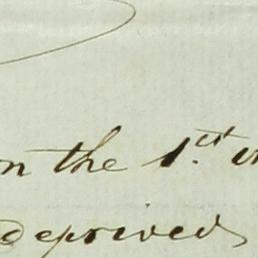 on the 1st
deprived